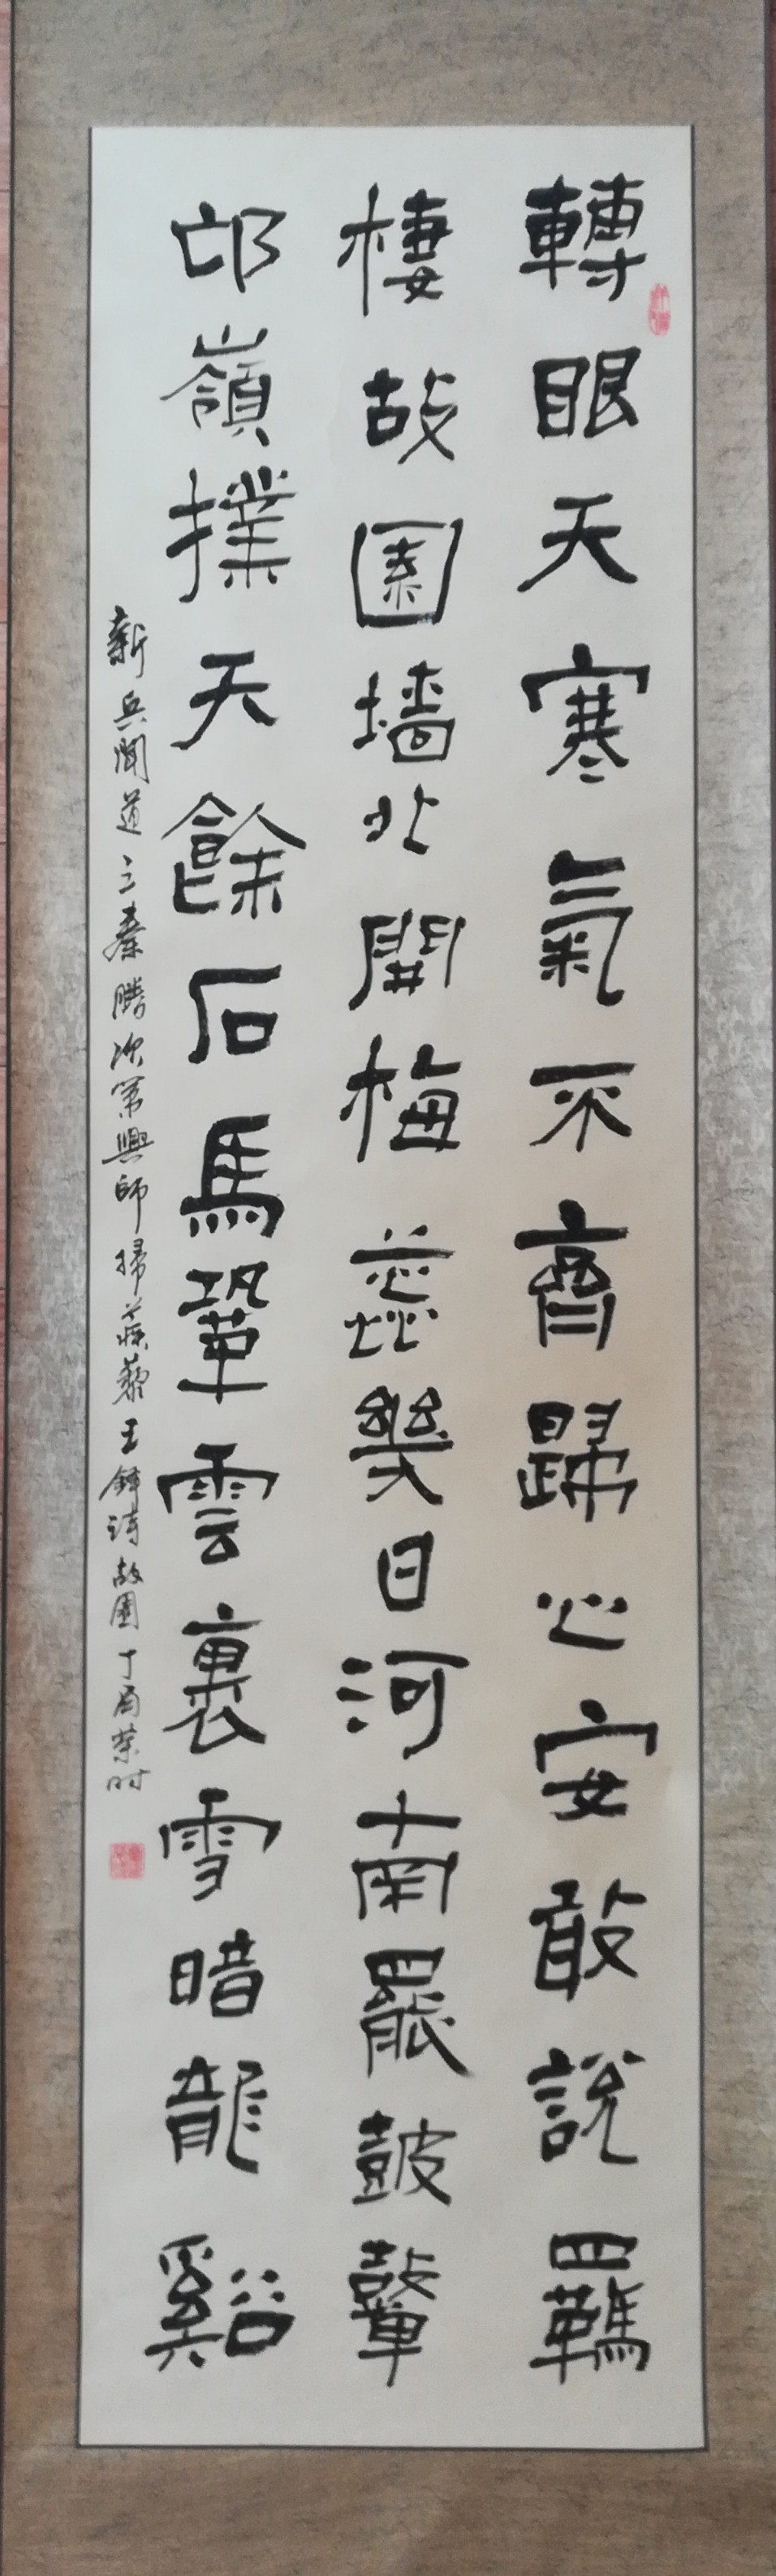 轉眼天寒氣不齊歸心安敢說羈
棲故園墻北開梅蕊幾日河南罷鼓鼙
邙嶺撲天餘石馬鞏雲裏雪暗龍谿
新兵聞道三秦騰次第興師掃蒺藜王鐸詩故園丁酉榮時